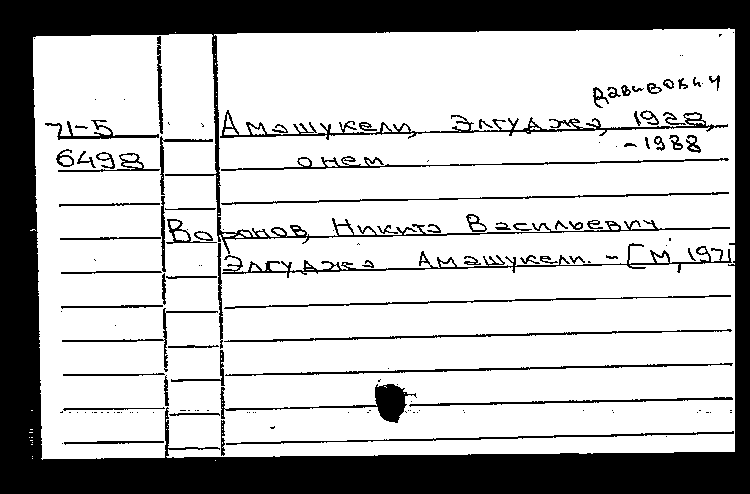 Давидович
71-5 Амашукели, Элгуджа, 1928,
-1988
6498 о нем
Воронов, Никита Васильевич
Элгуджа Амашукели. - [М, 1971